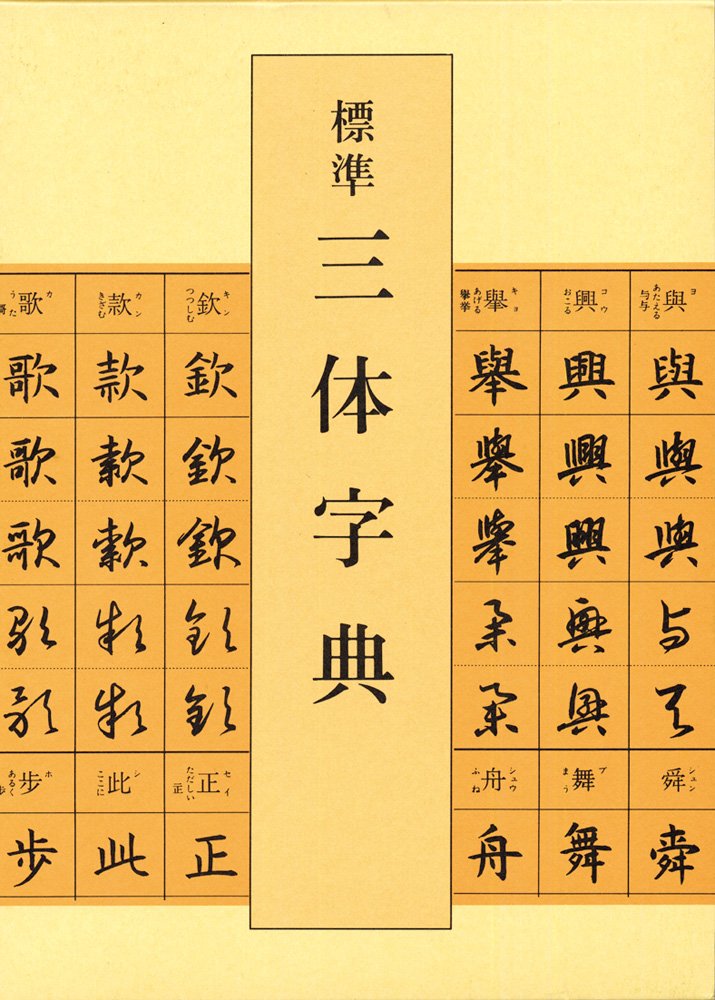 標準
三体字典
與 ヨ
あたえる
与与
與
與
與
与
与
舜 シュン
舜
興 コウ
おこる
興
興
興
興
興
舞 ブ
まう
舞
舉 キョ
あげる
擧挙
舉
舉
舉
舉
舉
舟 シュウ
ふね
舟
欽 キン
つつしむ
欽
欽
欽
欽
欽
正 セイ
ただしい
正
款 カン
きざむ
款
款
款
款
款
此 シ
ここに
此
歌 カ
うた
歌
歌
歌
歌
歌
步 ホ
あるく
步